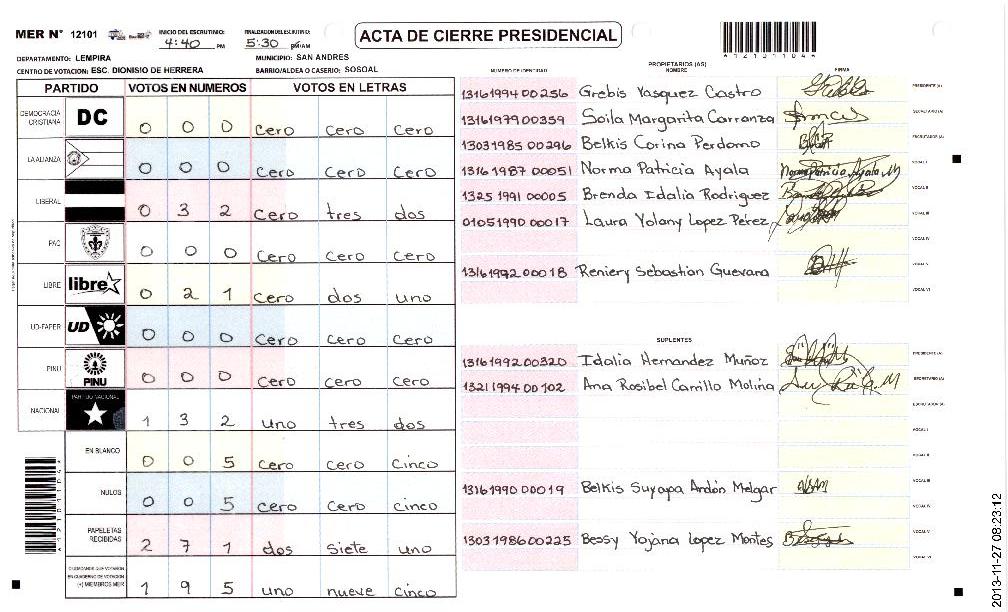 MER N° 12101 INICIO DEL ESCRUTINIO: 4:40 PM FINALIZACION DEL ESCRUTINIO: 5:30 PM/AM
ACTA DE CIERRE PRESIDENCIAL
DEPARTAMENTO: LEMPIRA MUNICIPIO: SAN ANDRES
CENTRO DE VOTACION: ESC. DIONISIO DE HERRERA BARRIO/ALDEA O CASERIO: SOSOAL
PARTIDO VOTOS EN NUMEROS VOTOS EN LETRAS
DEMOCRACIA CRISTIANA DC 0 0 0 Cero Cero Cero
LA ALIANZA 0 0 0 Cero Cero Cero
LIBERAL 0 3 2 Cero tres dos
PAC 0 0 0 Cero Cero Cero
LIBRE libre 0 2 1 Cero dos uno
UD-FAPER UD 0 0 0 Cero Cero Cero
PINU PINU 0 0 0 Cero Cero Cero
NACIONAL PARTIDO NACIONAL 1 3 2 uno tres dos
EN BLANCO 0 0 5 Cero Cero Cinco
NULOS 0 0 5 Cero Cero cinco
PAPELETAS RECIBIDAS 2 7 1 dos siete uno
CIUDADANOS QUE VOTARON EN CUADERNO DE VOTACION (+) MIEMBROS MER 1 9 5 uno nueve cinco
PROPIETARIOS (AS)
NUMERO DE IDENTIDAD NOMBRE FIRMA
1316199400256 Grebis Vasquez Castro PRESIDENTE (A)
1316197900359 Soila Margarita Carranza SECRETARIO (A)
1303198500296 Belkis Corina Perdomo ESCRUTADOR (A)
1316198700051 Norma Patricia Ayala Norma Patricia Ayala M VOCAL I
1325199100005 Brenda Idalia Rodriguez VOCAL II
0105199000017 Laura Yolany Lopez Pérez VOCAL III
VOCAL IV
1316199200018 Reniery Sebastian Guevara VOCAL V
VOCAL VI
SUPLENTES
1316199200320 Idalia Hernandez Muñoz PRESIDENTE (A)
1321199400102 Ana Rosibel Carrillo Molina SECRETARIO (A)
ESCRUTADOR (A)
VOCAL I
VOCAL II
1316199000019 Belkis Suyapa Andón Melgar VOCAL III
VOCAL IV
1303198600225 Bessy Yojana Lopez Montes VOCAL V
VOCAL VI
2013-11-27 08:23:12